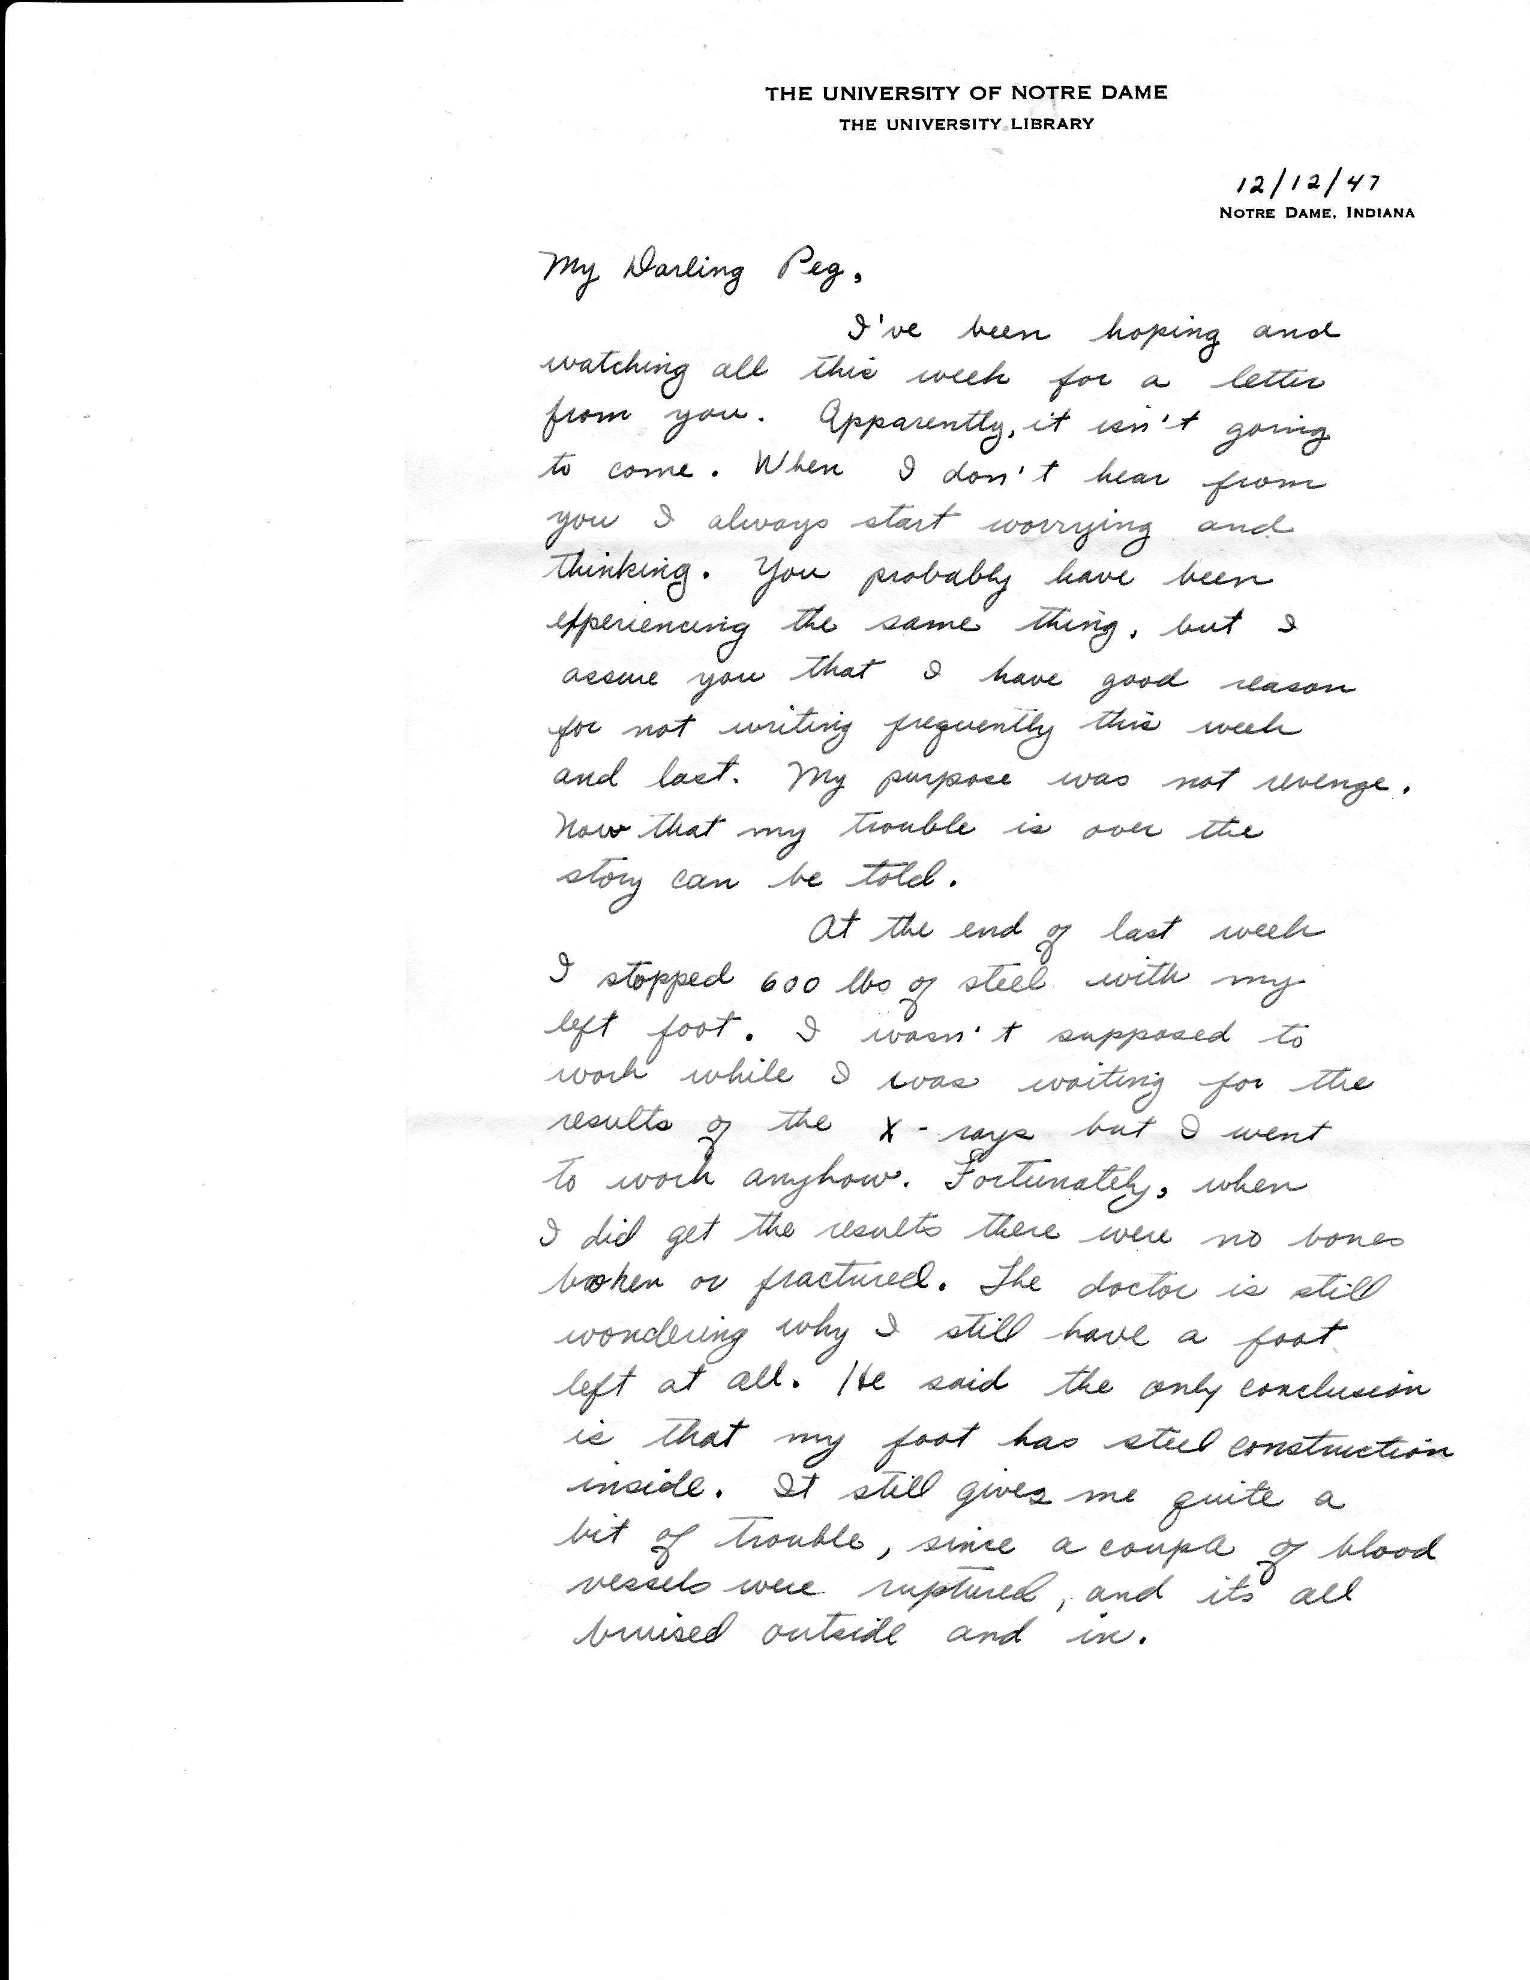 THE UNIVERSITY OF NOTRE DAME
THE UNIVERSITY LIBRARY
12/12/47
NOTRE DAME, INDIANA
My Darling Peg,
I've been hoping and
watching all this week for a letter
from you. Apparently, it isn't going
to come. When I don't hear from
you I always start worrying and
thinking. You probably have been
experiencing the same thing, but I
assure you that I have good reason
for not writing frequently this week
and last. My purpose was not revenge.
Now that my trouble is over the
story can be told.
At the end of last week
I stopped 600 lbs of steel with my
left foot. I wasn't supposed to
work while I was waiting for the
results of the X-rays but I went
to work anyhow. Fortunately, when
I did get the results there were no bones
broken or fractured. The doctor is still
wondering why I still have a foot
left at all. He said the only conclusion
is that my foot has steel construction
inside. It still gives me quite a
bit of trouble, since a couple of blood
vessels were ruptured, and its all
bruised outside and in.